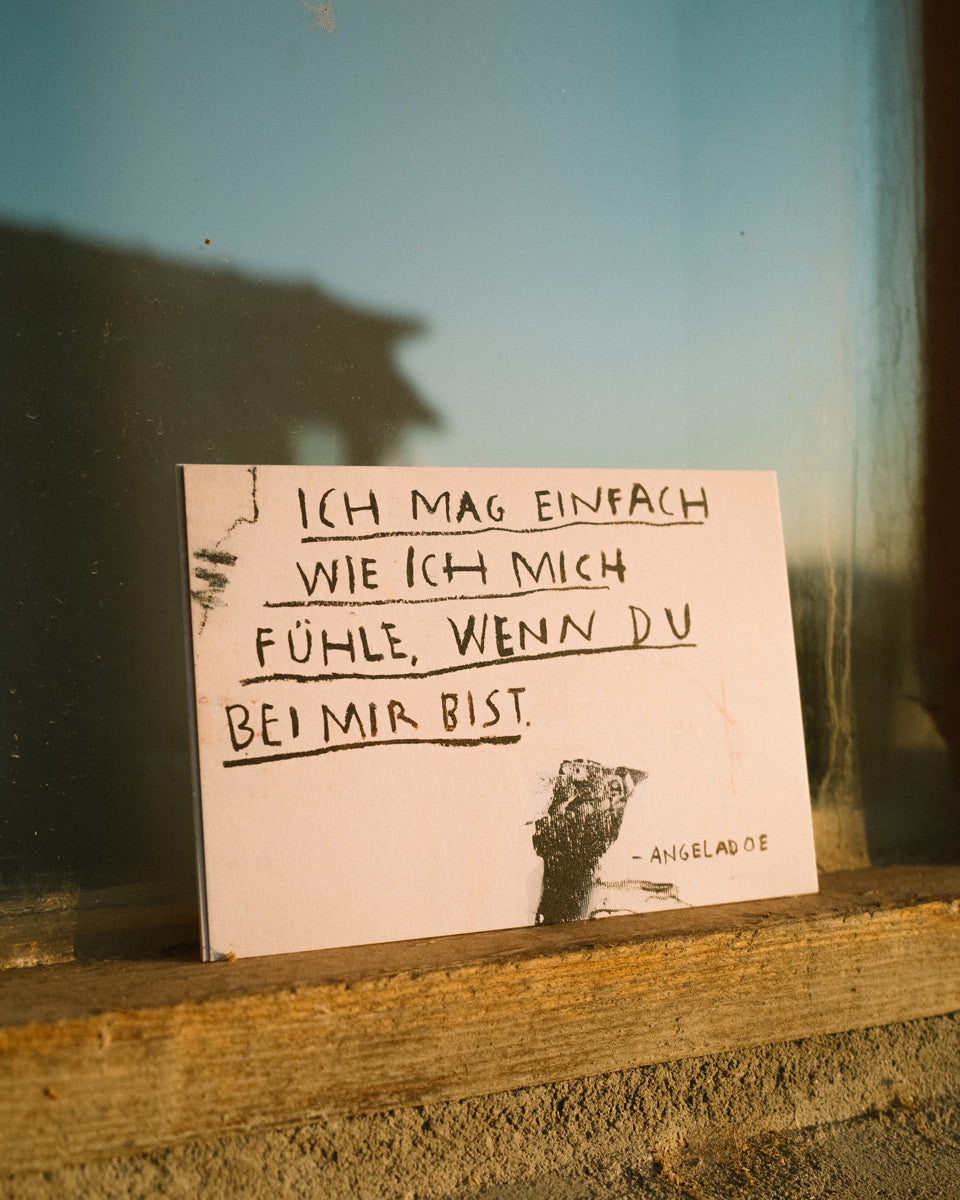 ICH MAG EINFACH
WIE ICH MICH
FÜHLE, WENN DU
BEI MIR BIST.
- ANGELADOE